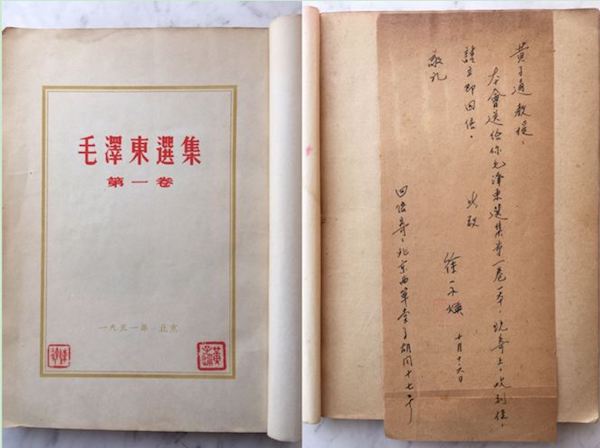 毛澤東選集
第一卷
一九五一年·北京
黄子通教授、
本會送给你毛泽東選集第一卷一本,现寄上,收到後,
請立即回信。
此致
敬礼
徐 十月十六日
回信寄:北京西單 胡同十七号